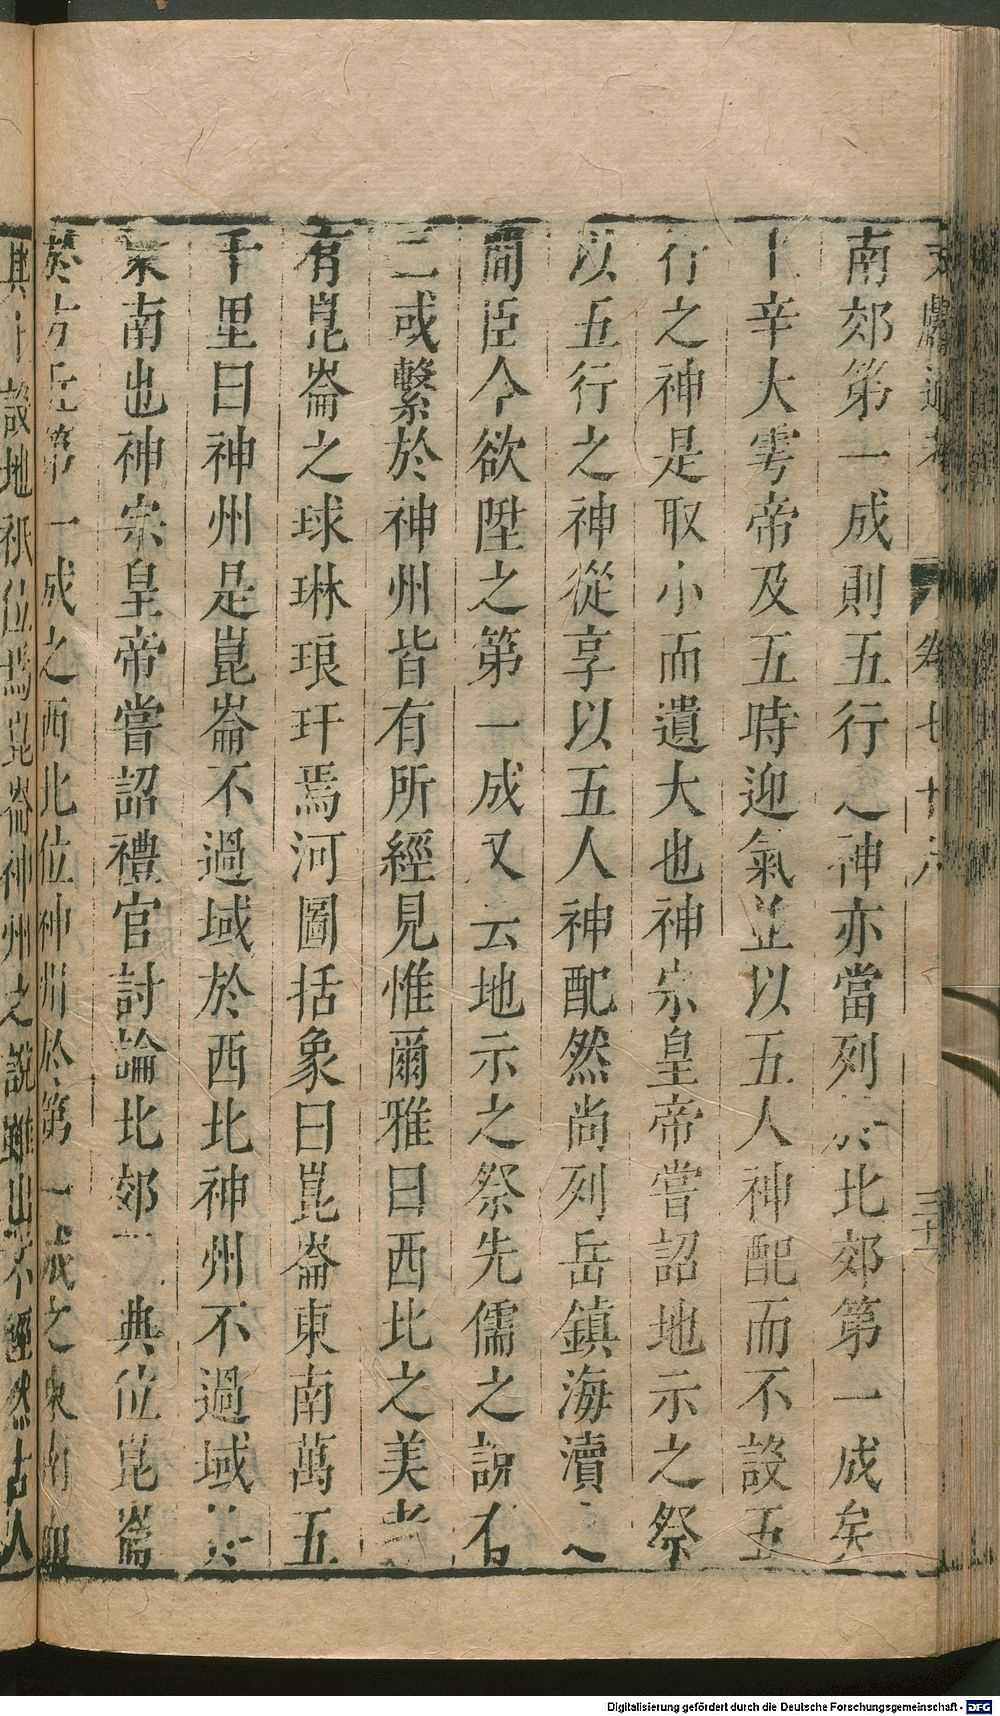 文獻通考 卷七十六 三十
南郊第一成則五行之神亦當列於北郊第一成矣
上辛大雩帝及五時迎氣並以五人神配而不設五
行之神是取小而遺大也神宗皇帝嘗詔地示之祭
以五行之神從享以五人神配然尚列岳鎮海瀆之
間臣今欲陞之第一成又云地示之祭先儒之說有
二或繫於神州皆有所經見惟爾雅曰西北之美者
有崑崙之球琳琅玕焉河圖括象曰崑崙東南萬五
千里曰神州是崑崙不過域於西北神州不過域於
東南也神宗皇帝嘗詔禮官討論北郊 典位崑崙
於方丘第一成之西北位神州於第一成之東南
其 設地祇位爲崑崙神州之說雖出不經然古人
Digitalisierung gefördert durch die Deutsche Forschungsgemeinschaft - DFG